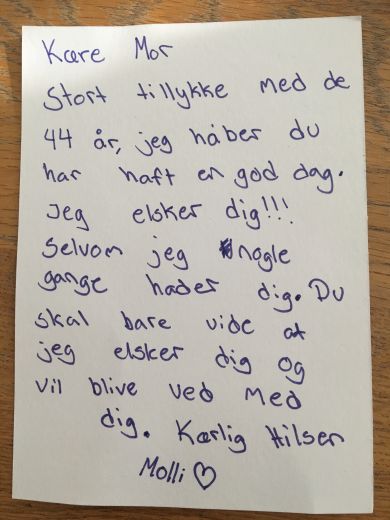 Kære Mor
Stort tillykke med de
44 år, jeg håber du
har haft en god dag.
Jeg elsker dig!!!
Selvom jeg nogle
gange hader dig. Du
skal bare vide at
jeg elsker dig og
vil blive ved med
dig. Kærlig Hilsen
Molli ♡